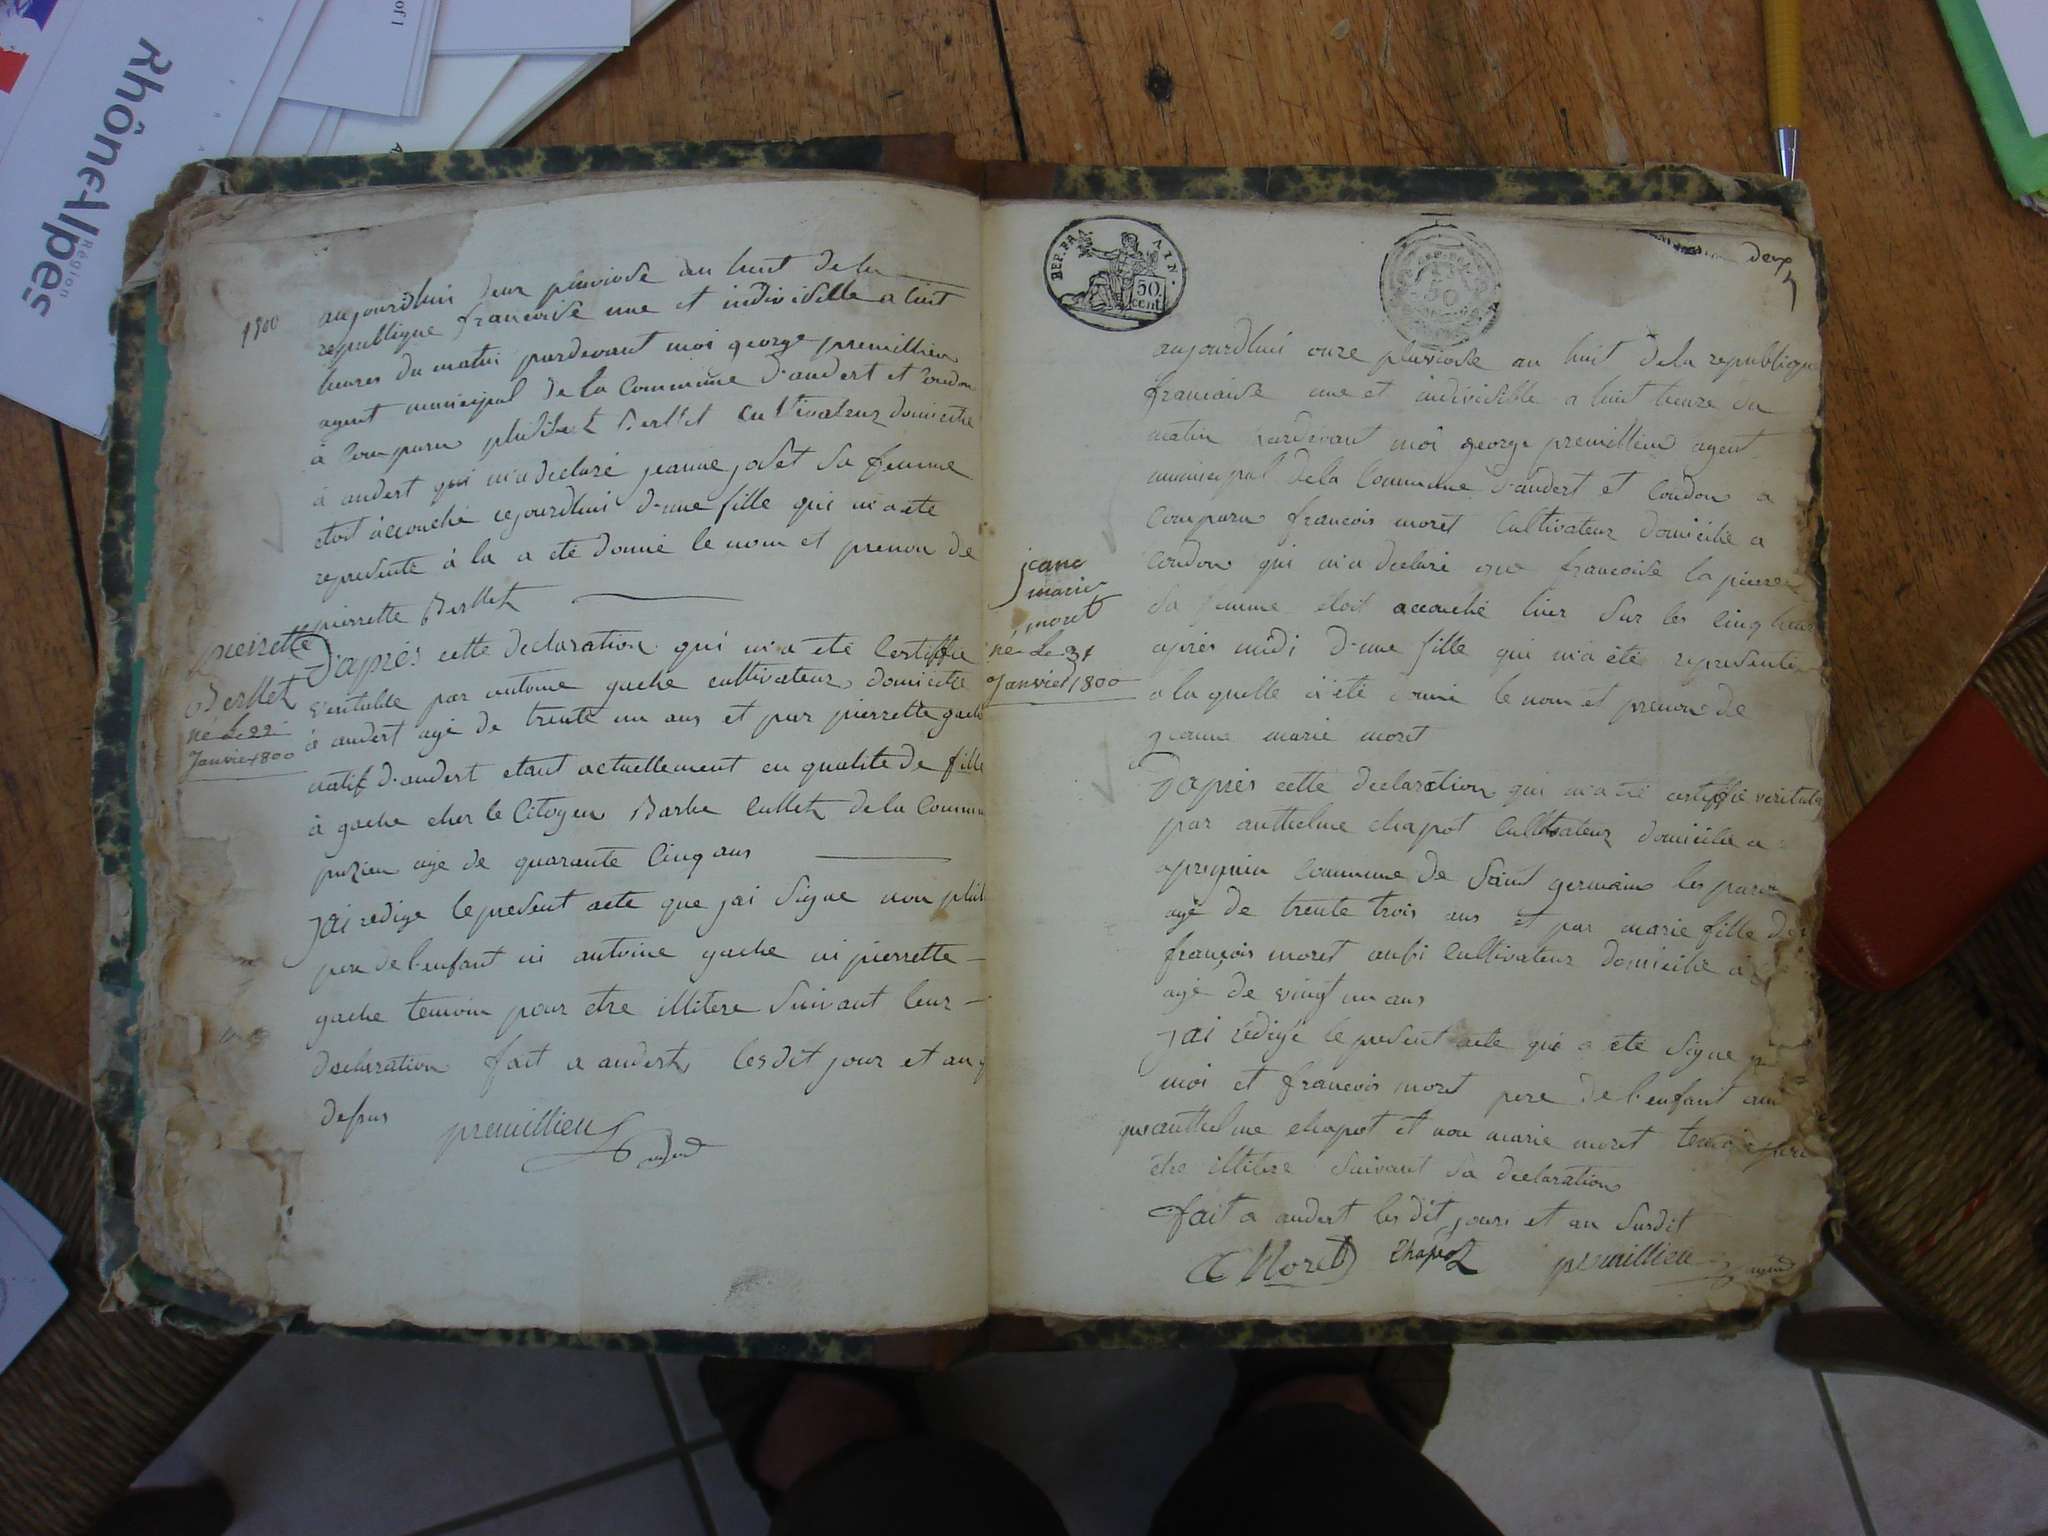 RhôneAlpes
Région
of 1
1800
aujourdhui deux pluviose an huit de la
republique francoise une et indivisille a huit
heures du matin pardevant moi george premillieu
agent municipal de la Commune d'andert et Condon
à Comparu philibert Berllet Cultivateur domicilié
à andert qui m'a declaré jeanne joset sa femme
etoit accouché cejourdhui d'une fille qui m'a eté
representé à la a eté donné le nom et prenon de
pierrette Berllet
pierrette
Berllet
né Le 22
Janvier 1800
D'après cette declaration qui m'a eté Certiffié
veritable par antoine gache cultivateur domicilié
à andert agé de trente un ans et par pierrette gache
natif d'andert etant actuellement en qualité de fille
à gache cher le Citoyen Barbe Cullet de la Commun
puzieu agé de quarante Cinq ans
J'ai redigé le present acte que j'ai Signé non phili
pere de l'enfant ni antoine gache ni pierrette
gache temoin pour etre illitere Suivant leur
declaration fait a andert les dit jour et an
dessus premillieu agent
REP. FRA
50
cent
50
deux
aujourdhui onze pluviose an huit de la republique
francaise une et indivisible a huit heure du
matin pardevant moi george premillieu agent
municipal de la Commune d'andert et Condon a
Comparu francois moret Cultivateur domicilié a
Condon qui m'a declaré que francoise la pierre
Sa femme etoit accouché hier Sur les Cinq heur
après midi d'une fille qui m'a été representé
a la quelle a été donné le nom et prenon de
jeanne marie moret
jeane
marie
moret
né Le 31
Janvier 1800
D'après cette declaration qui m'a été certiffié veritable
par anthelme chapot Cultivateur domicilié a
apregnin Commune de Saint germain les paroi
agé de trente trois ans et par marie fille de
françois moret aussi Cultivateur domicilié à
agé de vingt un ans
J'ai rédigé le present acte qui a eté Signé
moi et francois moret pere de l'enfant ain
que anthelme chapot et non marie moret temoin pour
etre illitere Suivant Sa declaration
fait a andert les dit jours et an Susdit
Moret Chapot premillieu agent